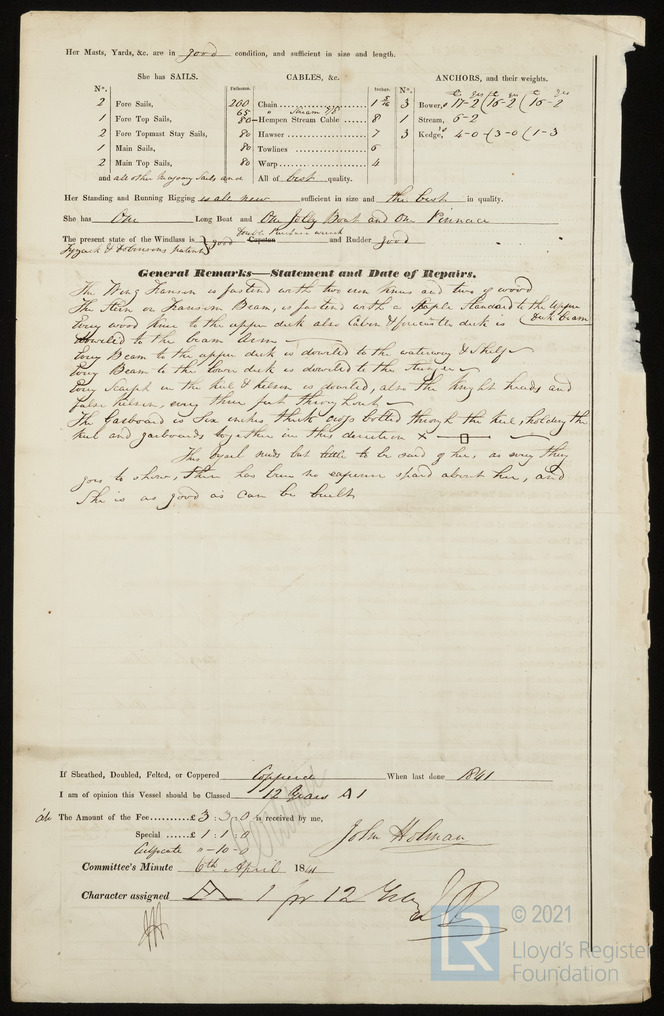 Her Masts, Yards, &c. are in good condition, and sufficient in size and length.
She has SAILS. CABLES, &c. ANCHORS, and their weights.
N°. Fathoms. Inches. N°.
2 Fore Sails, 200 Chain 1 5/16 3 Bowers, 17-2 (16-2 (16-2
65 " Stream 7/8
1 Fore Top Sails, 80 Hempen Stream Cable 8 1 Stream, 6-2
2 Fore Topmast Stay Sails, 80 Hawser 7 3 Kedge's 4-0 (3-0 (1-3
1 Main Sails, 80 Towlines 6
2 Main Top Sails, 80 Warp 4
and all other necessary Sails and All of best quality.
Her Standing and Running Rigging is all new sufficient in size and the best in quality.
She has One Long Boat and One Jolly Boat and One Pinnace
double Purchase winch
The present state of the Windlass is good Capstan and Rudder good
Tyzack & Dobinsons patent
General Remarks—Statement and Date of Repairs.
The Wing Transom is fastend with two iron knees and two of wood
The Stern or Transom Beam, is fastend with a Staple Standard to the upper
deck beam
Every wood knee to the upper deck also Cabin & forecastle deck is
doweled to the beam Arm
Every Beam to the upper deck is doweled to the waterway & Shelf
Every Beam to the lower deck is doweled to the Stringer
Every Scarph in the keel & kelson is doweled, also the knight heads and
false kelson, every three feet throughout
The Garboard is Six inches thick cross bolted through the keel, holding the
keel and garboards together in this direction ×
This Vessel needs but little to be said of her, as every thing
goes to show, there has been no expense spared about her, and
She is as good as can be built
If Sheathed, Doubled, Felted, or Coppered Coppered When last done 1841
I am of opinion this Vessel should be Classed 12 Years A 1
The Amount of the Fee £ 3 : 3 : 0 is received by me,
Special £ 1 : 1 : 0 John Holman
Certificate " - 10 - 0
Committee's Minute 6th April 1841
Character assigned A 1 for 12 Years
© 2021
LR
Lloyd's Register
Foundation